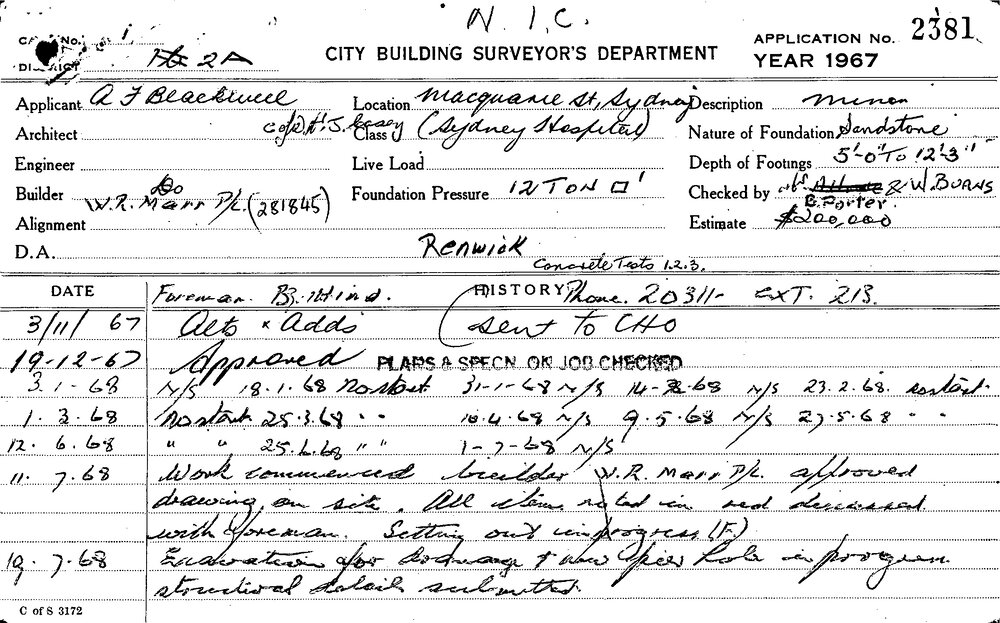 N.I.C.
CITY BUILDING SURVEYOR'S DEPARTMENT
APPLICATION No. 2381
YEAR 1967
No. 1
DISTRICT 2A
Applicant A F Blackwell
Location Macquarie St, Sydney
Description Minor
Architect c/o A. J. Casey
Class (Sydney Hospital)
Nature of Foundation Sandstone
Engineer
Live Load
Depth of Footings 5'-0" To 12'-3"
Builder Do W.R. Marr P/L. (281845)
Foundation Pressure 12 TON □'
Checked by & W. BURNS
B. Porter.
Alignment
Estimate $200,000
D.A.
Renwick
Concrete Tests 1.2.3.
DATE
HISTORY
Foreman. Phone. 20311- EXT. 213.
3/11/67 Alts & Adds (sent to CHO
19-12-67 Approved PLANS & SPECN ON JOB CHECKED
3.1.68 N/S 18.1.68 No start 31-1-68 N/S 14-2.68 N/S 23.2.68. no start.
1.3.68 No start 25.3.68 " " 10.4.68 N/S 9.5.68 N/S 27.5.68 " "
12.6.68 " " 25.6.68 " " 1-7-68 N/S
11.7.68 Work commenced builder W.R. Marr P/L. approved
drawing on site. All items noted in red discussed
with foreman. Setting out in progress (F.)
19.7.68 Excavation for drainage & new pier hole in progress.
structural details submitted.
C of S 3172